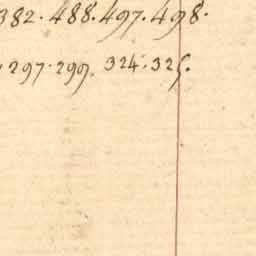 382. 488. 497. 498.
297. 299. 324. 325.